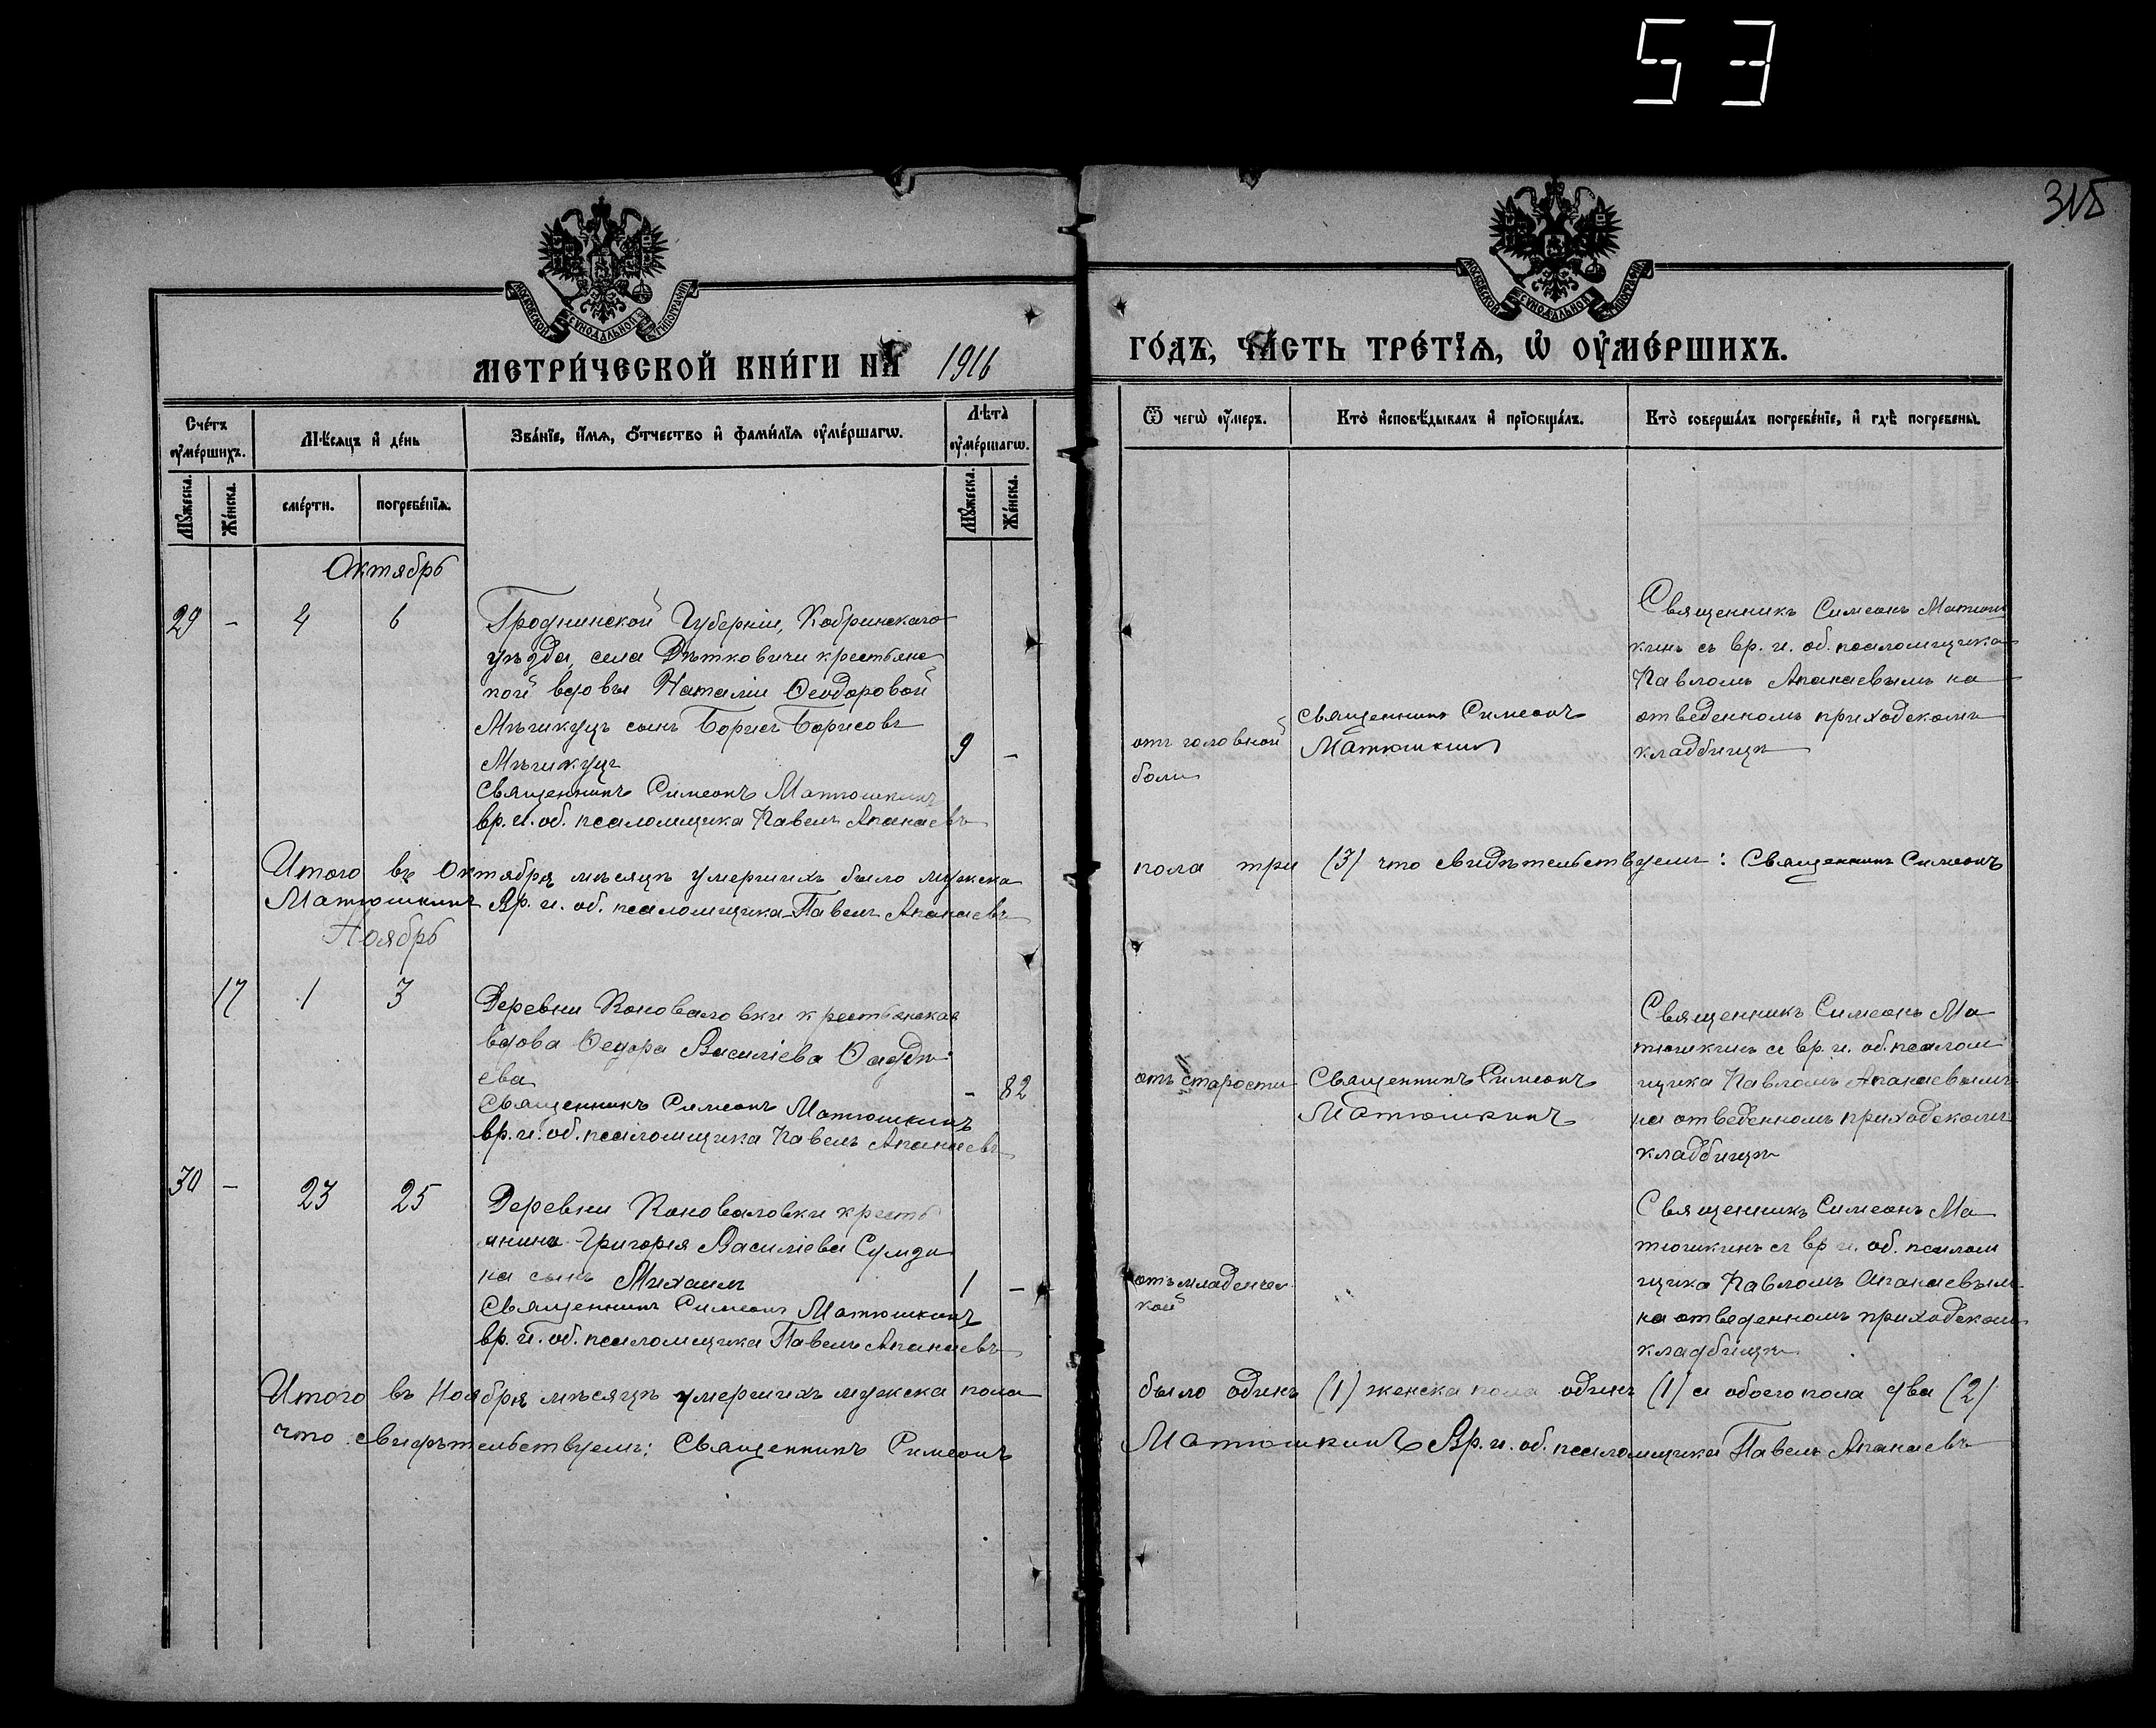 53
315
МОСКОВСКОЙ СѴНОДАЛЬНОЙ ТИПОГРАФІИ
МОСКОВСКОЙ СѴНОДАЛЬНОЙ ТИПОГРАФІИ
МЕТРИ́ЧЕСКОЙ КНИ́ГИ НА 1916
ГО́ДЪ, ЧА́СТЬ ТРЕ́ТЇѦ, Ѡ҆ ОУ҆МЕ́РШИХЪ.
Сче́тъ оу҆ме́ршихъ.
Мѣ́сѧцъ и҆ де́нь
Зва́нїе, и҆́мѧ, ѻ҆́тчество и҆ фами́лїѧ оу҆ме́ршагѡ.
Лѣ́та̀ оу҆ме́ршагѡ.
Ѿ чегѡ̀ оу҆́меръ.
Кто̀ и҆сповѣ́дывалъ и҆ прїѻбща́лъ.
Кто̀ соверша́лъ погребе́нїе, и҆ гдѣ̀ погребены̀.
Мꙋ́жеска.
Же́нска.
сме́рти.
погребе́нїѧ.
Мꙋ́жеска.
Же́нска.
Октябрь
29 - 4 6
Гродненской Губерніи, Кобринскаго
уѣзда, села Дѣтковичи крестьянс
кой вдовы Наталіи Ѳеодоровой
сынъ Борисъ Борисовъ
9 -
Священникъ Симеонъ Матюшкинъ
вр. и. об. псаломщика Павелъ Апанаевъ
отъ головной
боли
Священникъ Симеонъ
Матюшкинъ
Священникъ Симеонъ Матюш
кинъ съ вр. и. об. псаломщика
Павломъ Апанаевымъ на
отведенномъ приходскомъ
кладбищѣ
Итого въ Октябрѣ мѣсяцѣ умершихъ было мужска пола три (3) что свидѣтельствуемъ: Священникъ Симеонъ
Матюшкинъ Вр. и. об. псаломщика Павелъ Апанаевъ
Ноябрь
17 1 3
Деревни Коноваловки крестьянская
вдова Ѳедора Василіева
ева
- 82
Священникъ Симеонъ Матюшкинъ
вр. и. об. псаломщика Павелъ Апанаевъ
отъ старости
Священникъ Симеонъ
Матюшкинъ
Священникъ Симеонъ Ма
тюшкинъ съ вр. и. об. псалом
щика Павломъ Апанаевымъ
на отведенномъ приходскомъ
кладбищѣ
30 - 23 25
Деревни Коноваловки кресть
янина Григорія Василіева
на сынъ Михаилъ
1 -
Священникъ Симеонъ Матюшкинъ
вр. и. об. псаломщика Павелъ Апанаевъ
отъ младенчес
кой
Священникъ Симеонъ Ма
тюшкинъ съ вр. и. об. псалом
щика Павломъ Апанаевым
на отведенномъ приходском
кладбищѣ
Итого въ Ноябрѣ мѣсяцѣ умершихъ мужска пола было одинъ (1) женска пола одинъ (1) а обоего пола два (2)
что свидѣтельствуемъ: Священникъ Симеонъ Матюшкинъ Вр. и. об. псаломщика Павелъ Апанаевъ